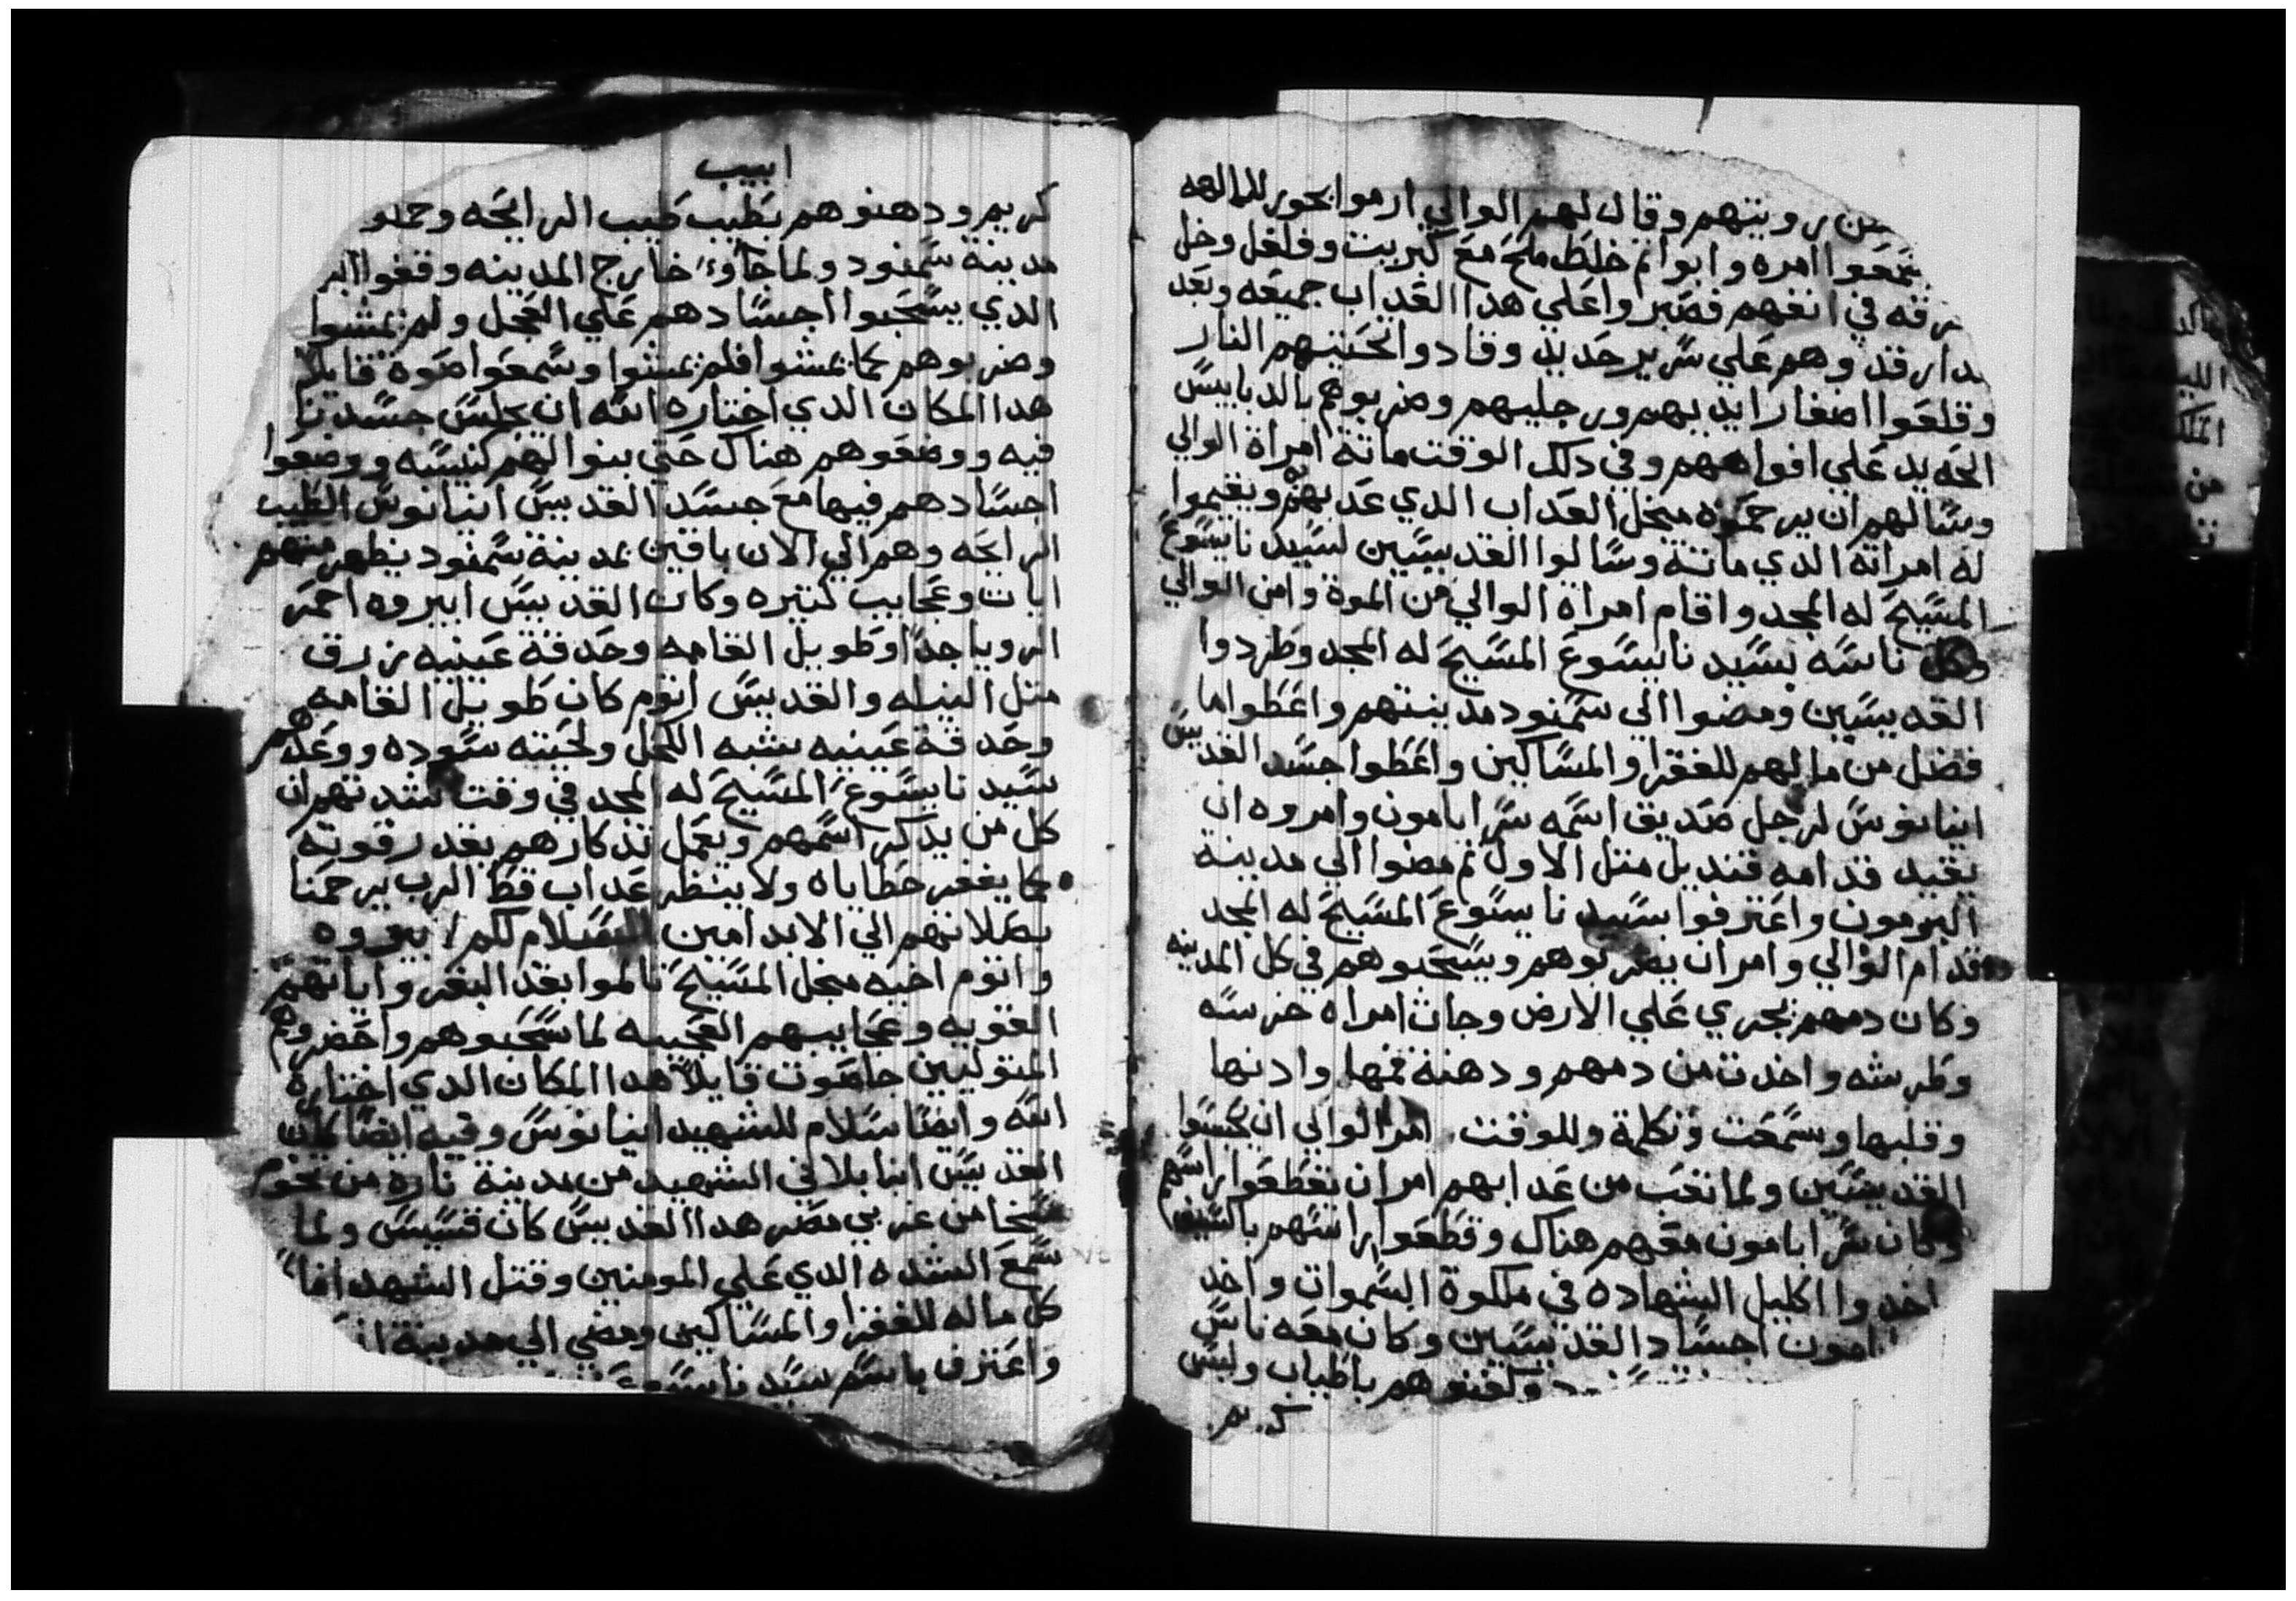 روينهم وقال لهم الوالي ارموا بخور للالهه
امره وابوا ثم خلط ملح مع كبريت وفلفل وخل
في انفهم فصبروا علي هدا العداب جميعه وبعد
وهم علي سرير حديد وقادوا تحتيهم النار
وقلعوا اضفار ايديهم ورجليهم وضربوهم بالدبابيس
الحديد علي افواههم وفي دلك الوقت ماتة امراة الوالي
وسالهم ان يرحموه منجل العداب الدي عدبهم ويقيموا
له امراته الدي ماتة وسالوا القديسين لسيدنا يسوع
المسيح له المجد واقام امراة الوالي من الموة وامن الوالي
وكل ناسه بسيدنا يسوع المسيح له المجد وطردوا
القديسين ومضوا الي سمنود مدينتهم واعطوا ما
فضل من مالهم للفقرا والمساكين واعطوا جسد القديس
ابنا نوس لرجل صديق اسمه سرابامون وامروه ان
يقيد قدامه قنديل متل الاول ثم مضوا الي مدينة
البرمون واعترفوا بسيدنا يسوع المسيح له المجد
قدام الوالي وامر ان يضربوهم ويسحبوهم في كل المدينه
وكان دمهم يجري علي الارض وجات امراه خرسه
وطرشه واخدت من دمهم ودهنة فمها وادنها
وقلبها وسمعت وتكلمة وللوقت امر الوالي ان يحبسوا
القديسين ولما تعب من عدابهم امر ان تقطعوا راسهم
وكان سرابامون معهم هناك وقطعوا راسهم بالسيف
اخدوا اكليل الشهاده في ملكوة السموات واخد
امون اجساد القديسين وكان معه ناس
وكفنوهم باطياب ولبس
كريم
ابيب
كريم ودهنوهم بطيب طيب الرايحه وحملو
مدينة سمنود ولما جاوء خارج المدينه وقفوا البر
الدي يسحبوا اجسادهم علي العجل ولم يمشوا
وضربوهم كما يمشوا فلم يمشوا وسمعوا صوة قايلا
هدا المكان الدي اختاره الله ان يجلس جسدنا
فيه ووضعوهم هناك حتي بنوا لهم كنيسه ووضعوا
اجسادهم فيها مع جسد القديس ابنا نوس الطيب
الرايحه وهم الي الان باقين بمدينة سمنود يظهر منهم
ايات وعجايب كتيره وكان القديس ابيروه احمر
الرويا جدا وطويل القامه وحدقة عينيه زرق
متل النيله والقديس اتوم كان طويل القامه
وحدقة عينيه يشبه الكحل ولحيته سوده ووعدهم
سيدنا يسوع المسيح له المجد في وقت شدتهم ان
كل من يدكر اسمهم ويعمل تدكارهم بقدر قوته
كما يغفر خطاياه ولا ينظر عداب قط الرب يرحمنا
بصلاتهم الي الابد امين السلام لكم ابيروه
واتوم اخيه منجل المسيح تالموا بقد البقر واياتهم
القويه وعجايبهم العجيبه لما سحبوهم واحضروهم
المتوليين جا صوت قايلا هدا المكان الدي اختاره
الله وايضا سلام للشهيد ابنا نوس وفيه ايضا كان
القديس ابنا بلاني الشهيد من مدينة تاره من نحو
سخا من غربي مصر هدا القديس كان قسيس ولما
سمع الشده الدي علي المومنين وقتل الشهدا
كل ماله للفقرا والمساكين ومضي الي مدينة
واعترف باسم سيدنا يسوع